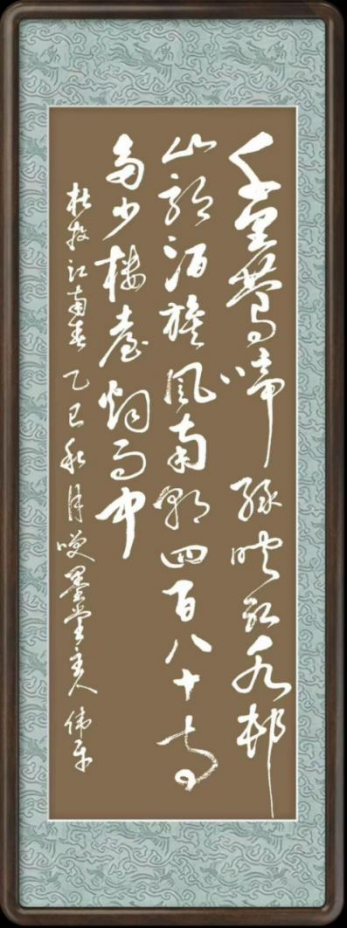 千里莺啼绿映红水邨
山郭酒旗风南朝四百八十寺
多少楼台烟雨中
杜牧江南春乙巳秋月墨堂主人伟平